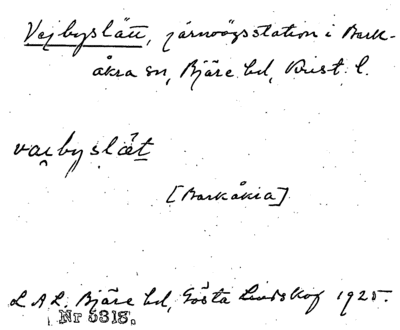 Vejbyslätt, järnvägsstation i Bark-
åkra sn, Bjäre hd, Krist. l.
vai̯byslæt
[Barkåkra]
L A L. Bjäre hd, Gösta Lindskog 1925.
Nr 5318.